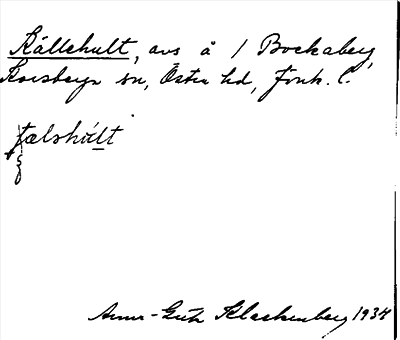 Källehult, avs å 1 Bockaberg,
Korsberga sn, Östra hd, Jönk. l.
tælshúlt
Anna-Greta Klackenberg 1934